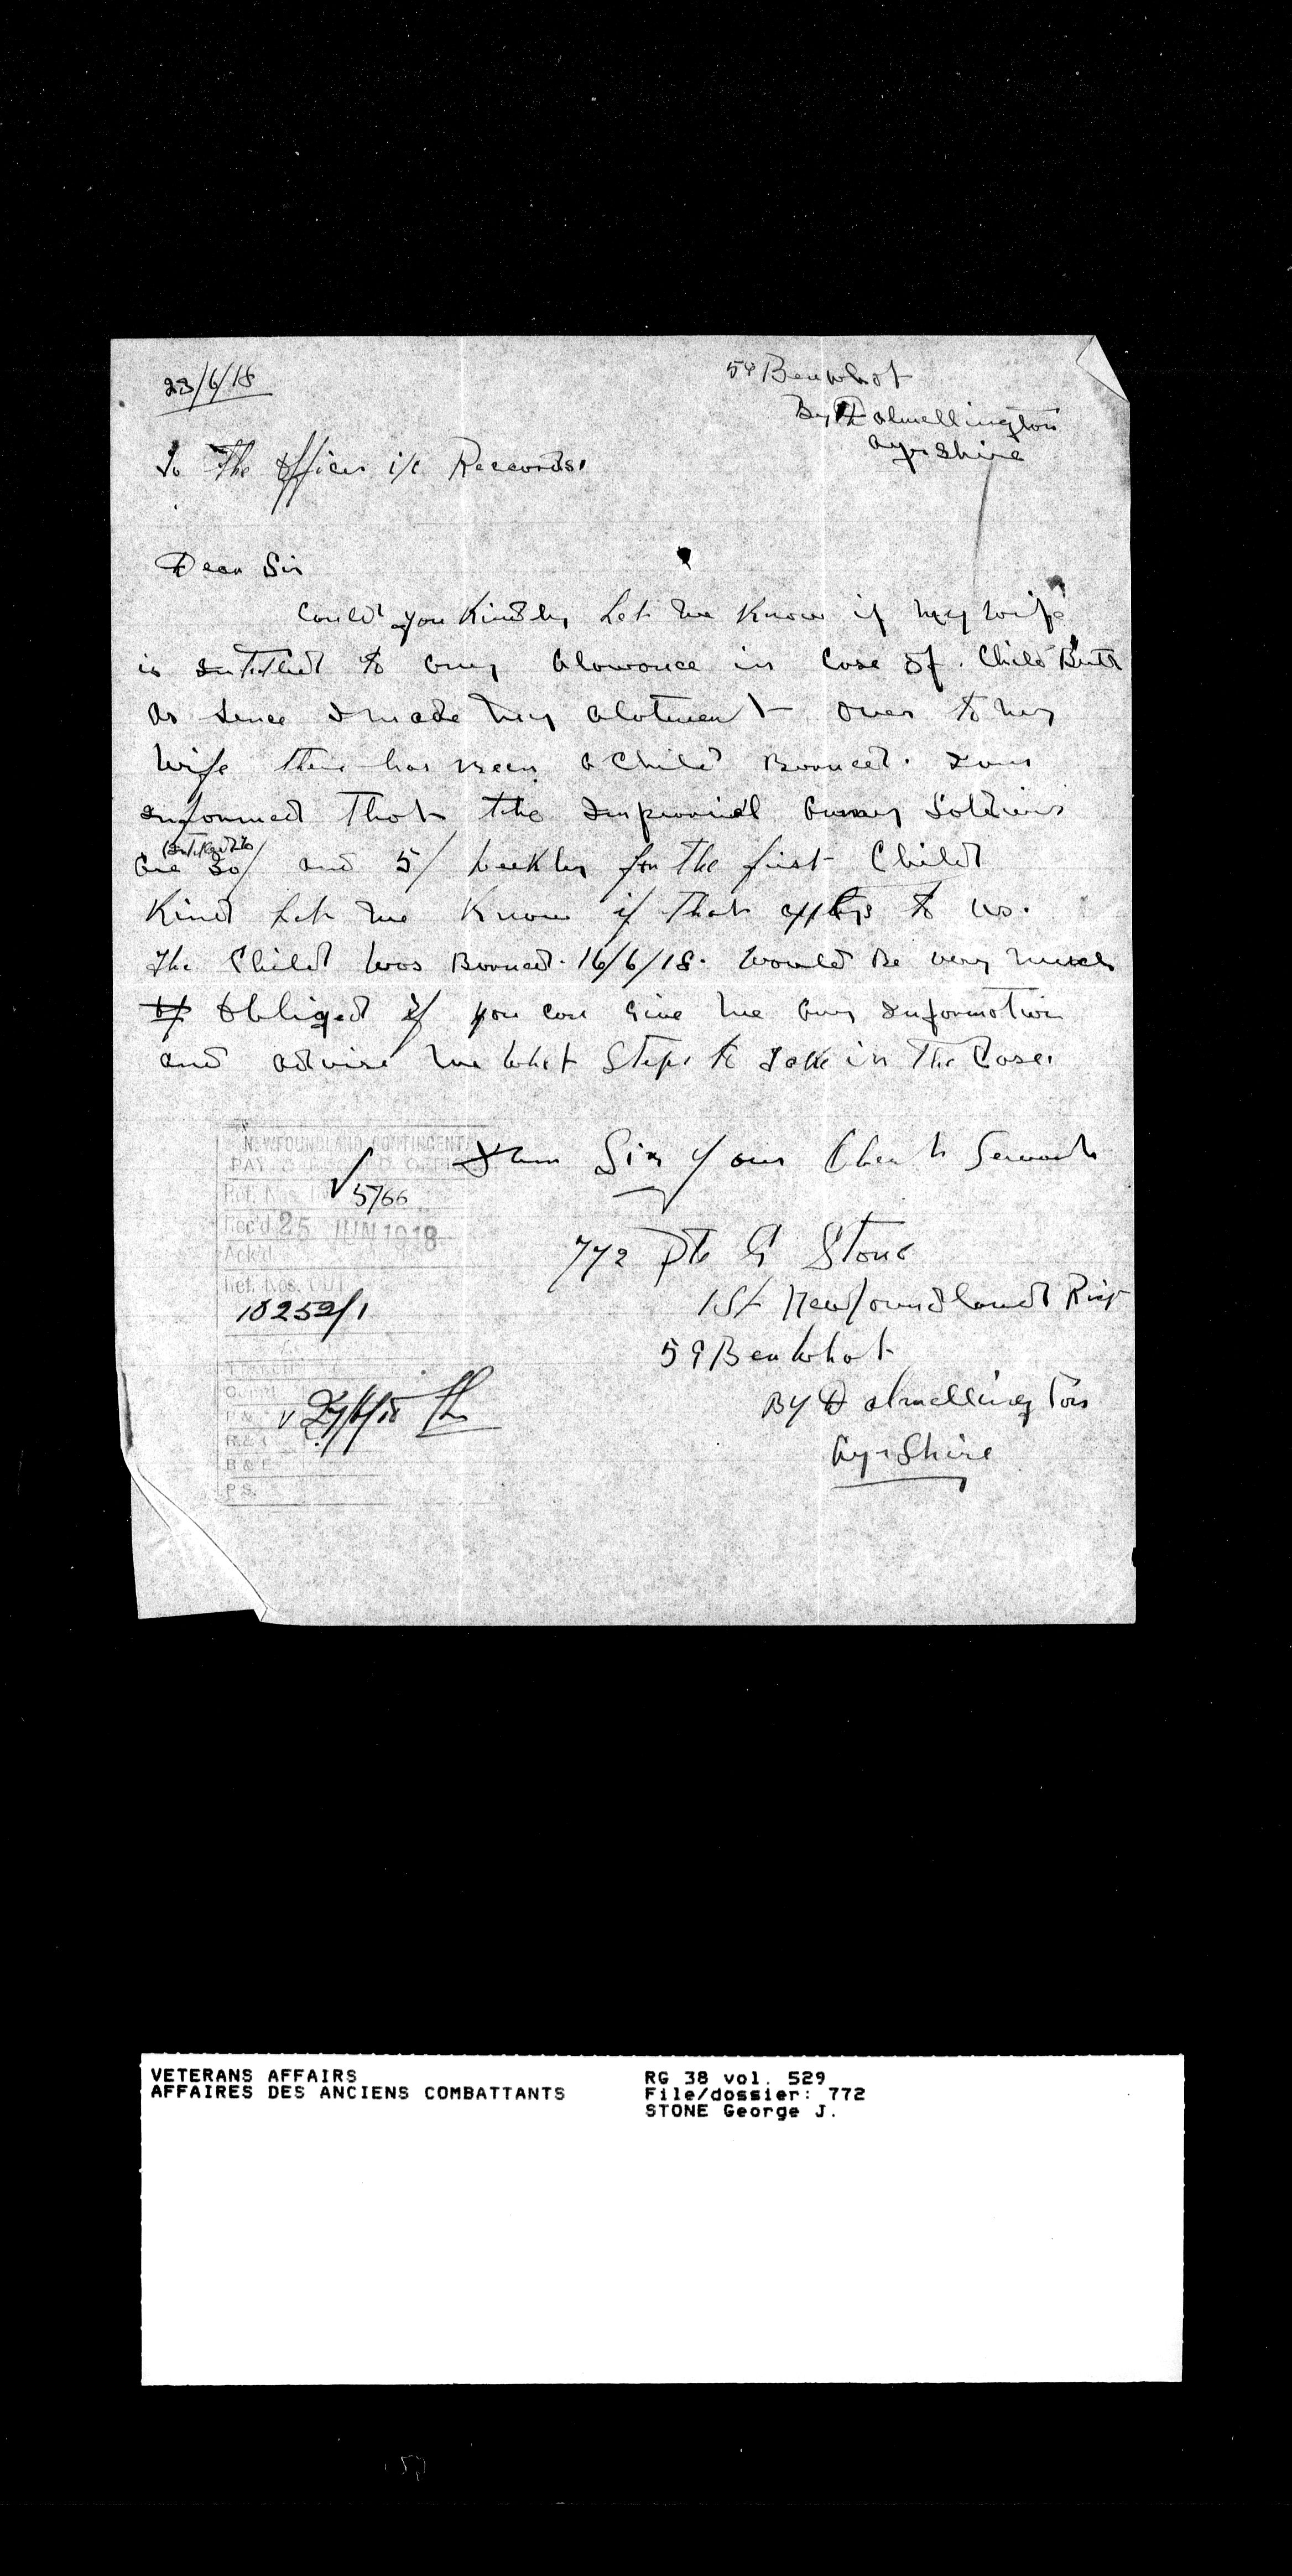 23/6/18
59 Benwhat
By Dalmellington
Ayrshire
To The Officer i/c Reccords.
Dear Sir
Could you Kindly Let me Know if my wife
is Intitled to any Alowance in Case of Child Birth
as Sence I made my alotment over to my
Wife their has Been a Child Borned. I am
Informed That the Imperial Army Soldiers
(Intitled to
are 30/ and 5/ Weekly for the first Child
Kind Let me Know if That applys to us.
The Child Was Borned. 16/6/18. Would Be very much
Obliged if you can Give me any Information
and advise me What Steps to Take in The Case.
I am Sir your Obent Servant
772 Pte G Stone
1st Newfoundland Rigt
59 Benwhat
By Dalmellington
Ayrshire
NEWFOUNDLAND CONTINGENT
PAY & RECORD OFFICE
Ref. Nos. In
5766
Rec'd 25 JUN 1918
Ack'd
Ref. Nos. Out
10252/1
R & E
P.S.
VETERANS AFFAIRS RG 38 vol. 529
AFFAIRES DES ANCIENS COMBATTANTS File/dossier: 772
STONE George J.